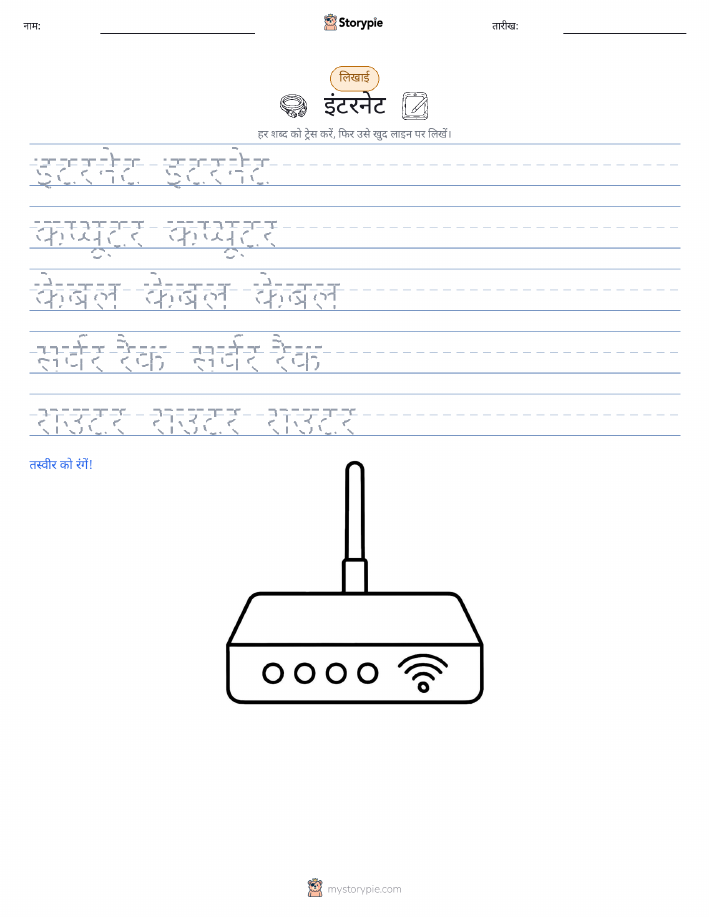 नाम:
Storypie
तारीख:
लिखाई
इंटरनेट
हर शब्द को ट्रेस करें, फिर उसे खुद लाइन पर लिखें।
इंटरनेट इंटरनेट
कंप्यूटर कंप्यूटर
केबल केबल केबल
सर्वर रैक सर्वर रैक
राउटर राउटर राउटर
तस्वीर को रंगें!
mystorypie.com